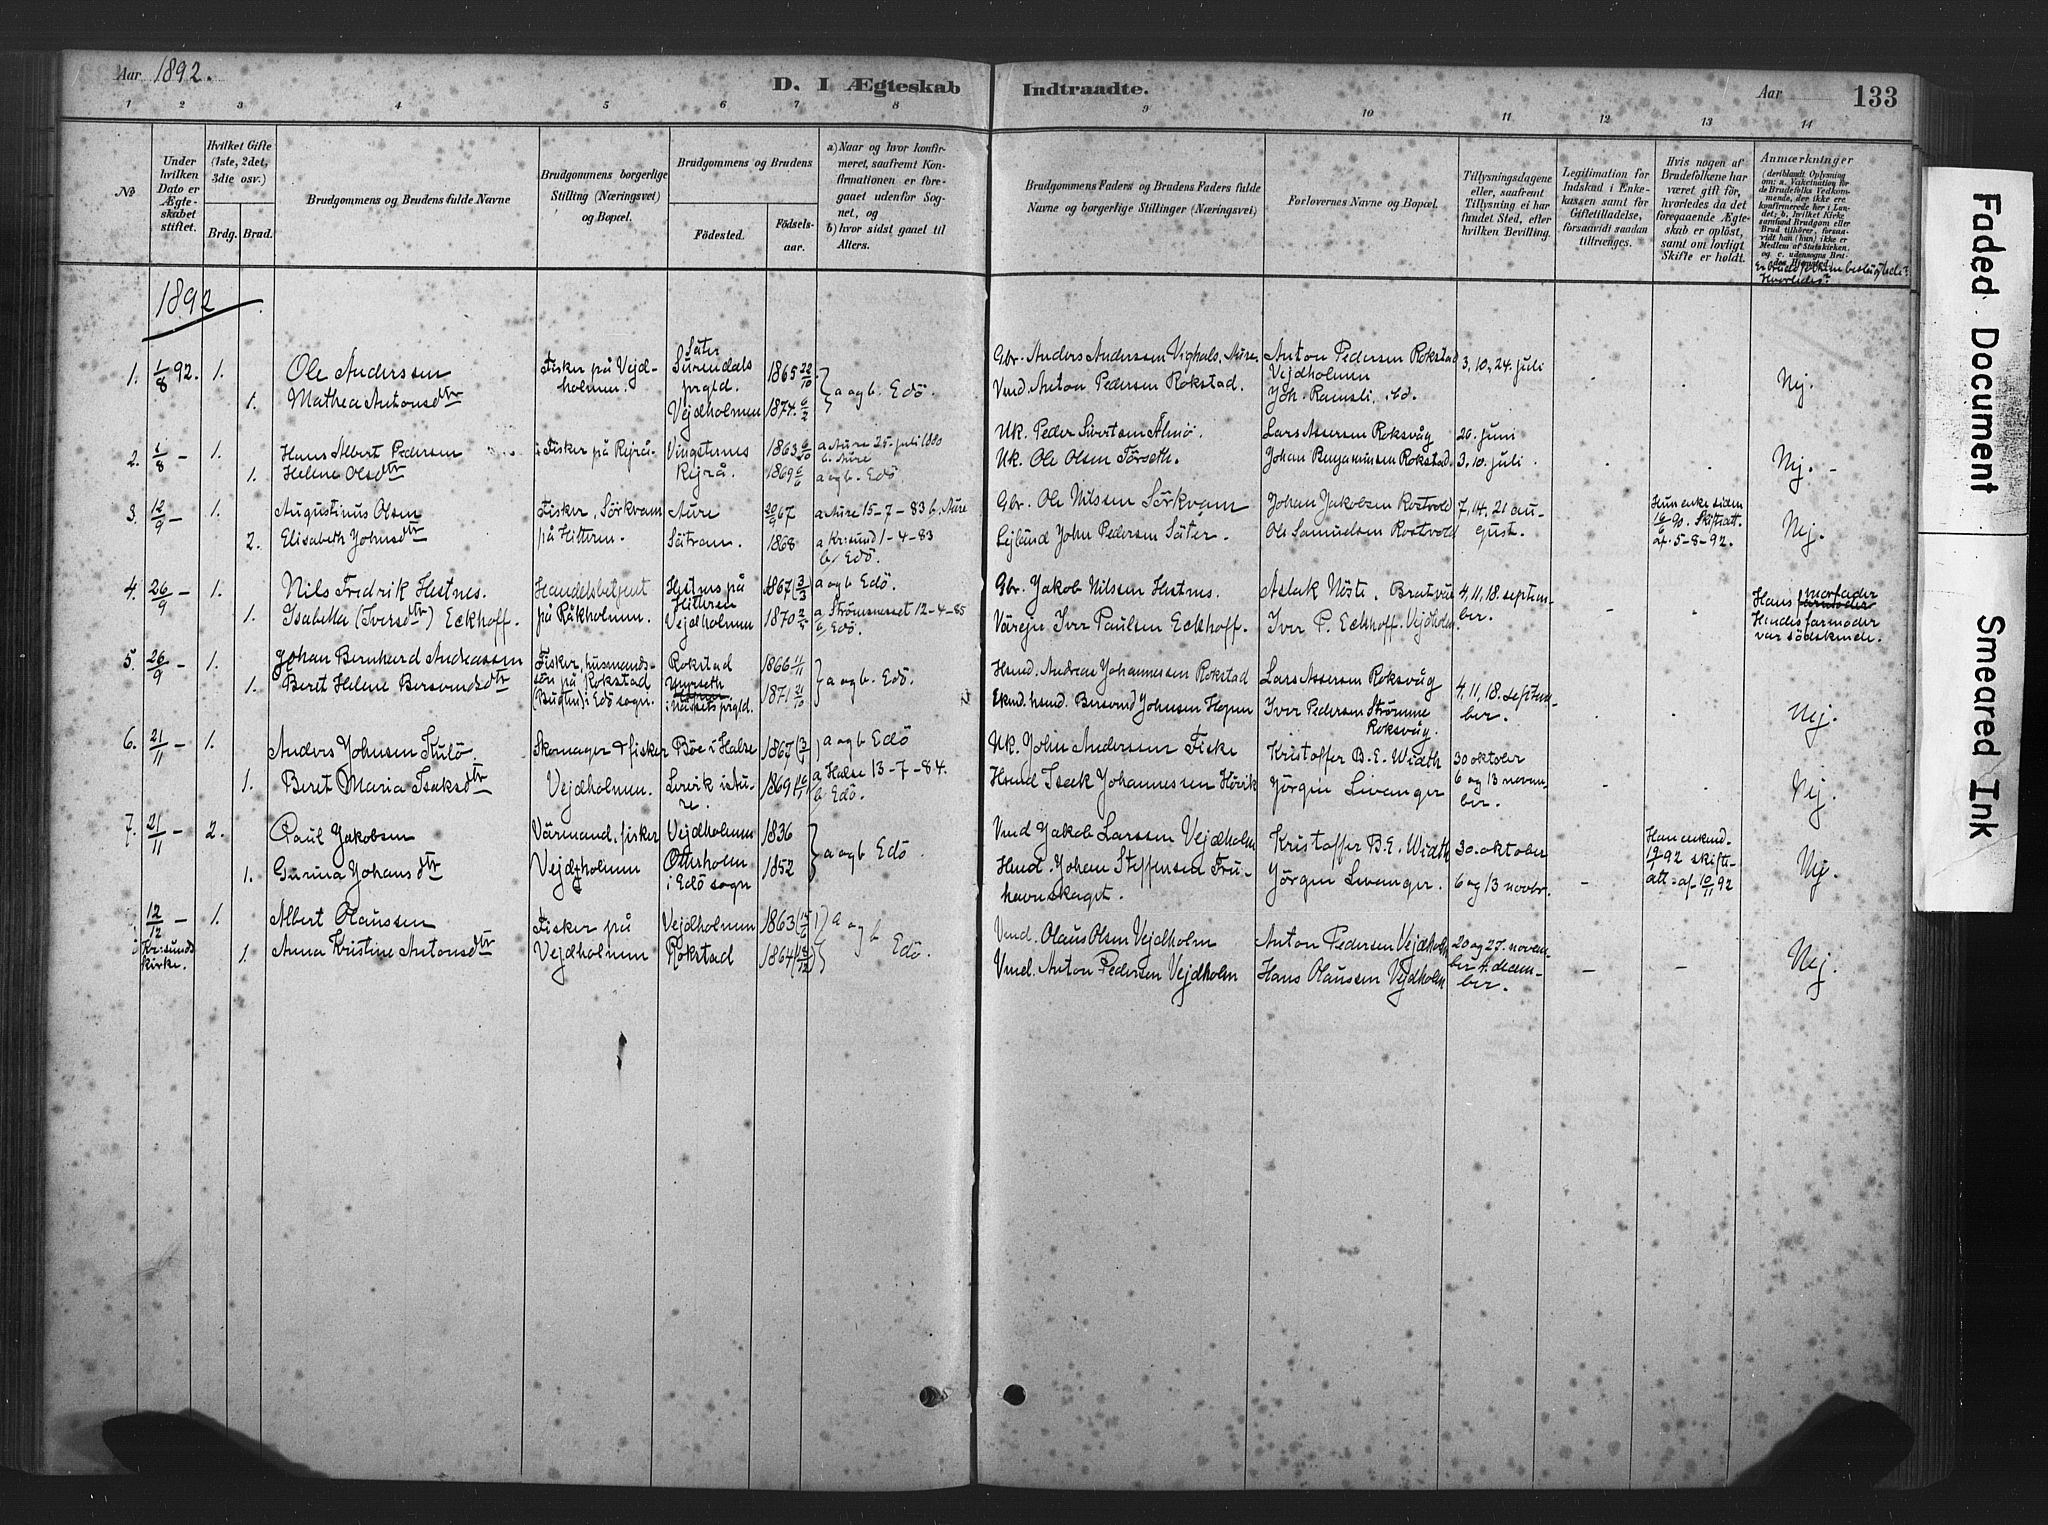 Aar 1892.
D. I Ægteskab Indtraadte.
Aar 133
1 2 3 4 5 6 7 8 9 10 11 12 13 14
No
Under hvilken Dato er Ægteskabet stiftet.
Hvilket Gifte (1ste, 2det, 3die osv.)
Brdg. Brud.
Brudgommens og Brudens fulde Navne
Brudgommens borgerlige Stilling (Næringsvei) og Bopæl.
Brudgommens og Brudens
Fødested.
Fødselsaar.
a) Naar og hvor konfirmeret, saafremt Konfirmationen er foregaaet udenfor Sognet, og
b) hvor sidst gaaet til Alters.
Brudgommens Faders og Brudens Faders fulde Navne og borgerlige Stillinger (Næringsvei)
Forlovernes Navne og Bopæl.
Tillysningsdagene eller, saafremt Tillysning ei har fundet Sted, efter hvilken Bevilling.
Legitimation for Indskud i Enkekassen samt for Giftetilladelse, forsaavidt saadan tiltrænges.
Hvis nogen af Brudefolkene har været gift før, hvorledes da det foregaaende Ægteskab er opløst, samt om lovligt Skifte er holdt.
Anmærkninger
(deriblandt Oplysning om: a. Vakcination for de Brudefolks Vedkommende, der ikke ere konfirmerede her i Landet; b. hvilket Kirkesamfund Brudgom eller Brud tilhører, forsaavidt han (hun) ikke er Medlem af Statskirken, og c. udensogns Brudes Hjemsted.
Er brudefolkene beslægtede? Hvorledes?
1892
1. 1/8 92. 1. Ole Anderssen Fisker på Vejdholmen. Säter Surendals prgld. 1865 22/10 } a og b. Edö. Gbr. Anders Anderssen Vighals, Aure. Anton Pedersen Rokstad Vejdholmen 3, 10, 24. juli . . Nej.
1. Mathea Antonsdtr Vejdholmen 1874. 6/2 Vmd. Anton Pedersen Rokstad. Joh. Ramsli, ibd.
2. 1/8 – 1. Hans Albert Pedersen Fisker på Rejrå Vingsternes 1863 a Aure 25. juli b. Aure Uk. Peder Sivertsen Almö. Lars Assersen Roksvåg 26. juni . . Nej. –
1. Helene Olsdtr Rejrå. 1869 a og b. Edö Uk. Ole Olsen Förseth. Johan Benjaminsen Rokstad. 3. 10. juli.
3. 12/9 – 1. Augustinus Olsen Fisker, Sörkvam på Hitteren. Aure 20/9 67 a Aure 15-7-83 b. Aure Gbr. Ole Nilssen Sörkvam Johan Jakobsen Rostvold 7, 14, 21 august. Hun enke siden 16/6 90. Skifteatt. af 5-8-92. Nej.
2. Elisabeth Johnsdtr Sätran. 1868 a Krisund 1-4-83 b/ Edö. Lejlænd John Pedersen Säter. Ole Samuelsen Rostvold
4. 26/9 – 1. Nils Fredrik Hestnes. Handelsbetjent på Råkholmen. Hestnes på Hitteren 1867 (3/3) a og b Edö. Gbr. Jakob Nilssen Hestnes. Aslak Nösti, Bratvær 4, 11, 18. september. . . Hans morfader farmoder Hendes farmoder var södskende.
1. Isabella (Iversdtr) Eckhoff. Vejdholmen 1870 a. Strömsneset 12-4-85 b/ Edö. Värejer Iver Paulsen Eckhoff. Iver P. Eckhoff. Vejdholm
5. 26/9 – 1. Johan Bernhard Andreassen Fisker, husmandssön på Rokstad (Bugten) i Edö sogn. Rokstad 1866 11/11 } a og b. Edö. Hsmd. Andreas Johannessen Rokstad Lars Assersen Roksvåg 4, 11, 18. september. . . Nej.
1. Beret Helene Bersvendsdtr i Nessets prgld. 1871. 21/10 Ekmd. hsmd. Bersvend Johnsen Hopen Iver Pedersen Strömme Roksvåg.
6. 21/11 – 1. Anders Johnsen Kulö. Skomager & fisker Vejdholmen. Böe i Halse 1867 a og b Edö Uk. John Andersen Fiske Kristoffer B. E. Width 30 oktober 6 og 13 november. . . Nej.
1. Beret Maria Isaksdtr Lervik i Aure. 1869 a Halse 13-7-84. b. Edö. Hsmd Isak Johannessen Hörvik Jörgen Livanger
7. 21/11 – 2. Paul Jakobsen Värmand, fisker Vejdholmen Vejdholmen 1836 } a og b Edö. Vmd Jakob Larssen Vejdholm Kristoffer B. E. Width 30. oktober 6 og 13 novbr. – Han enkmd. 19/2 92 skifteatt. af 10/11 92 Nej.
1. Gurina Johansdtr Otterholm i Edö sogn 1852 Hsmd. Johan Steffensen Fruhavnskaget. Jörgen Livanger.
12/12 – i Krisunds kirke. 1. Albert Olaussen Fisker på Vejdholmen Vejdholmen 1863 (15/2) } a og b Edö. Vmd. Olaus Olsen Vejdholm Anton Pedersen Vejdholm 20 og 27. november 4. december. – – Nej.
1. Anna Kristine Antonsdtr Rokstad 1864 (13/12) Vmd. Anton Pedersen Vejdholm Hans Olaussen Vejdholm
Faded Document
Smeared Ink